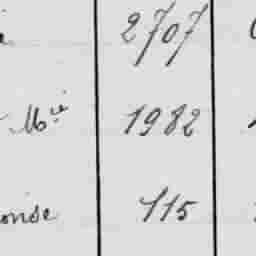 2707
Mié 1982
onse 115